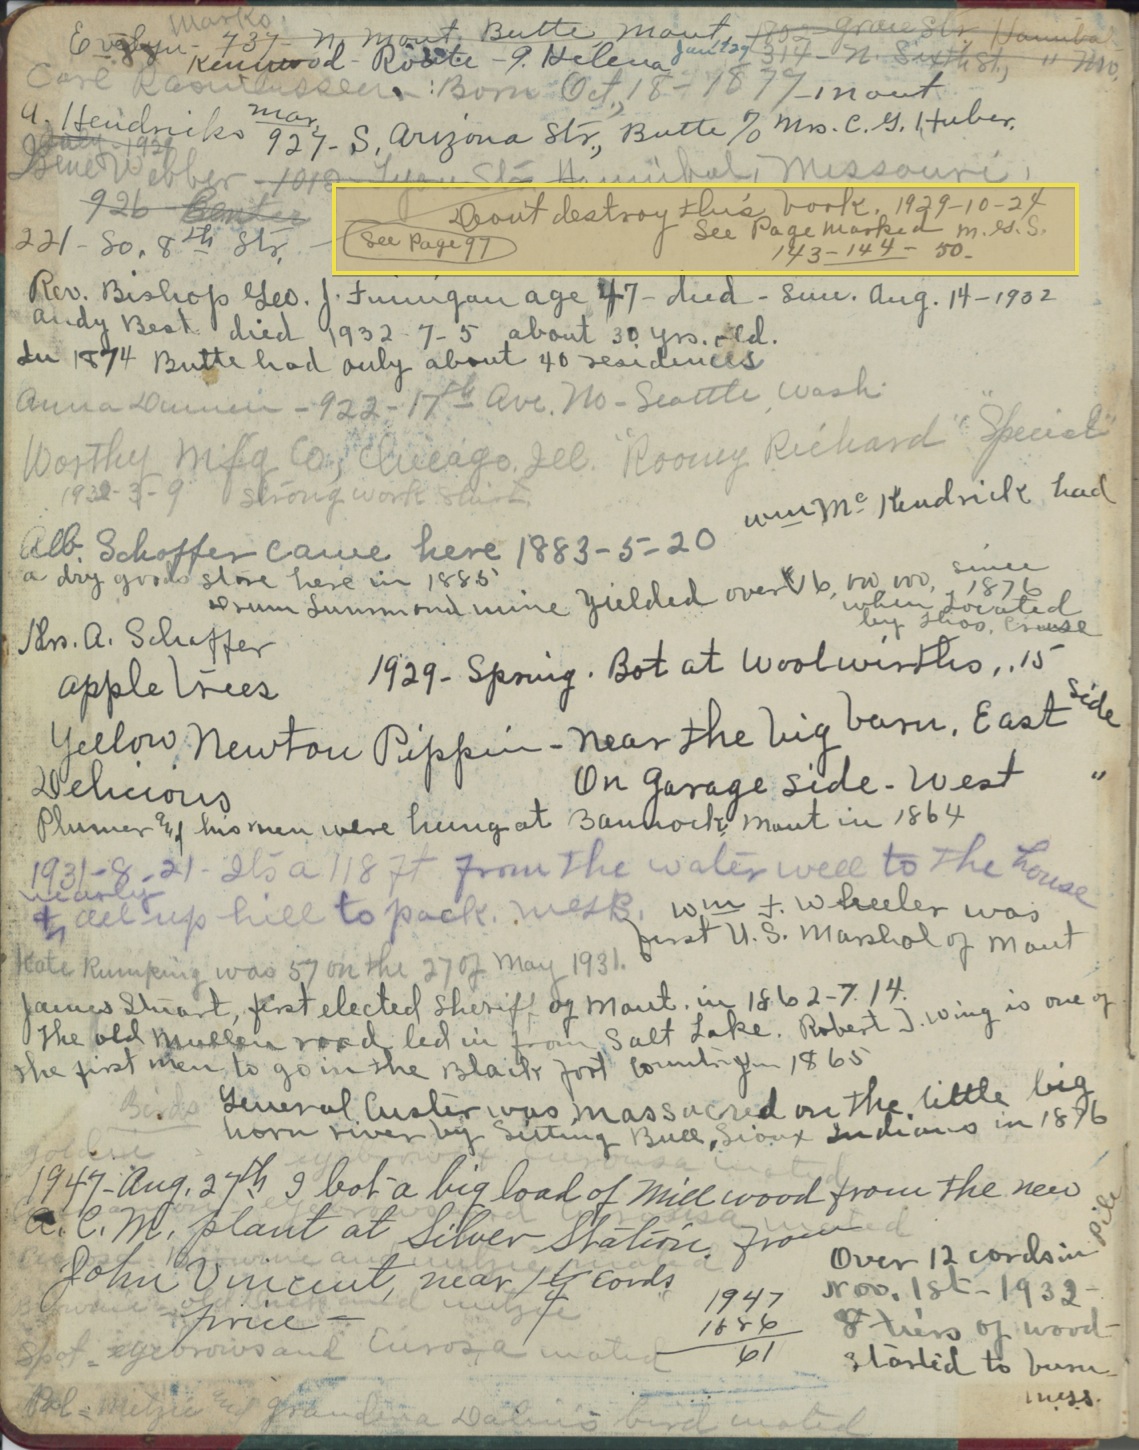 Marks.
Evelyn - 737 - N. Mont, Butte, Mont,
Kennwood - Route - 9. Helena Jan 1929 1314 - N. Sixth St, " Mo.
Carl Rasmussen. : Born Oct, 18 - 1877 - in out
A. Hendricks mar, 927 - S. Arizona Str., Butte % Mrs. C. G. Huber.
1929
Webber - 1018 - Lyon Str Hannibal, Missouri,
926
Dont destroy this book. 1929-10-24
221 - So. 8th Str. - See Page 97 See Page Marked M.G.S.
143 - 144 - 50 -
Rev. Bishop Geo. J. Finnigan age 47 - died - Sun. Aug. 14 - 1932
Andy Best died 1932-7-5 about 30 yrs. old.
In 1874 Butte had only about 40 residences
Anna - 922 - 17th Ave. No - Seattle, Wash.
Worthy Mfg Co, Chicago, Ill. "Rooney Richard" "Special"
1932-3-9 strong work shirt
Alb. Schoffer came here 1883-5-20 Wm Mc Kendrick had
a dry goods store here in 1885
Drum Lummond mine yielded over $16,000,000, since
1876
when Located
by Thos. Cruse
Mrs. A. Schaffer
apple trees 1929 - Spring. Bot at Woolwirths,. .15
Yellow, Newton Pippin - near the big barn, East side
Delicious On Garage side - West "
Plumer & his men were hung at Bannock, Mont in 1864
1931-8-21 - Its a 118 ft from the water well to the house
nearly
& all up hill to pack. M&R. Wm F. Wheeler was
first U.S. Marshal of Mont
Kate Rumping was 57 on the 27 of May 1931.
James Stuart, first elected Sheriff of Mont. in 1862-7.14.
The old Mullen road led in from Salt Lake. Robert J. Wing is one of
the first men to go in the Black Foot Country in 1865
Birds General Custer was massacred on the little big
horn river by Sitting Bull, Sioux Indians in 1876
1947 - Aug. 27th I bot a big load of Mill wood from the new
A.C.M. plant at Silver Station, from
John Vincent, near 1 1/4 cords
price -
1947
1886
61
Over 12 cords in pile
Nov. 1st - 1932 -
8 tiers of wood -
started to burn
M&S.
Spot - eyebrows and mated
Grandma bird mated